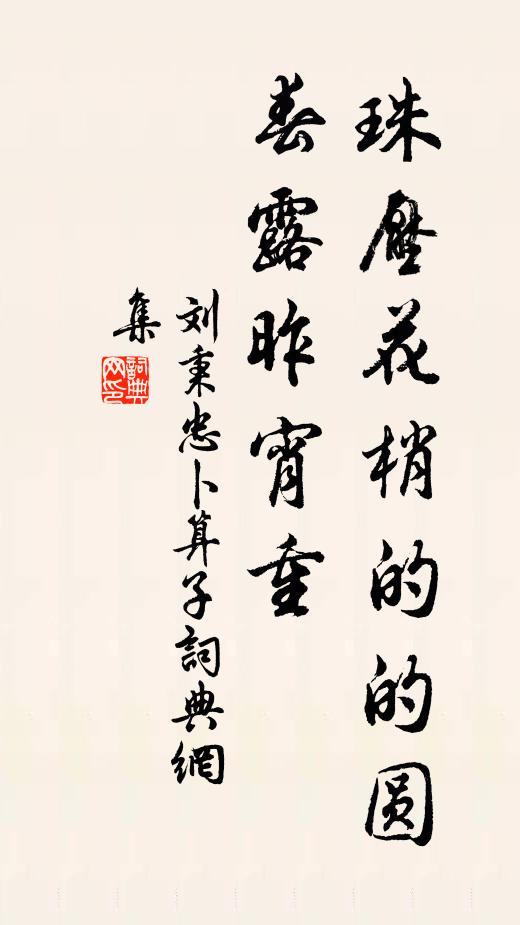 珠压花梢的的圆
春露昨宵重
刘秉忠卜算子詞典網
集
詞典
网印